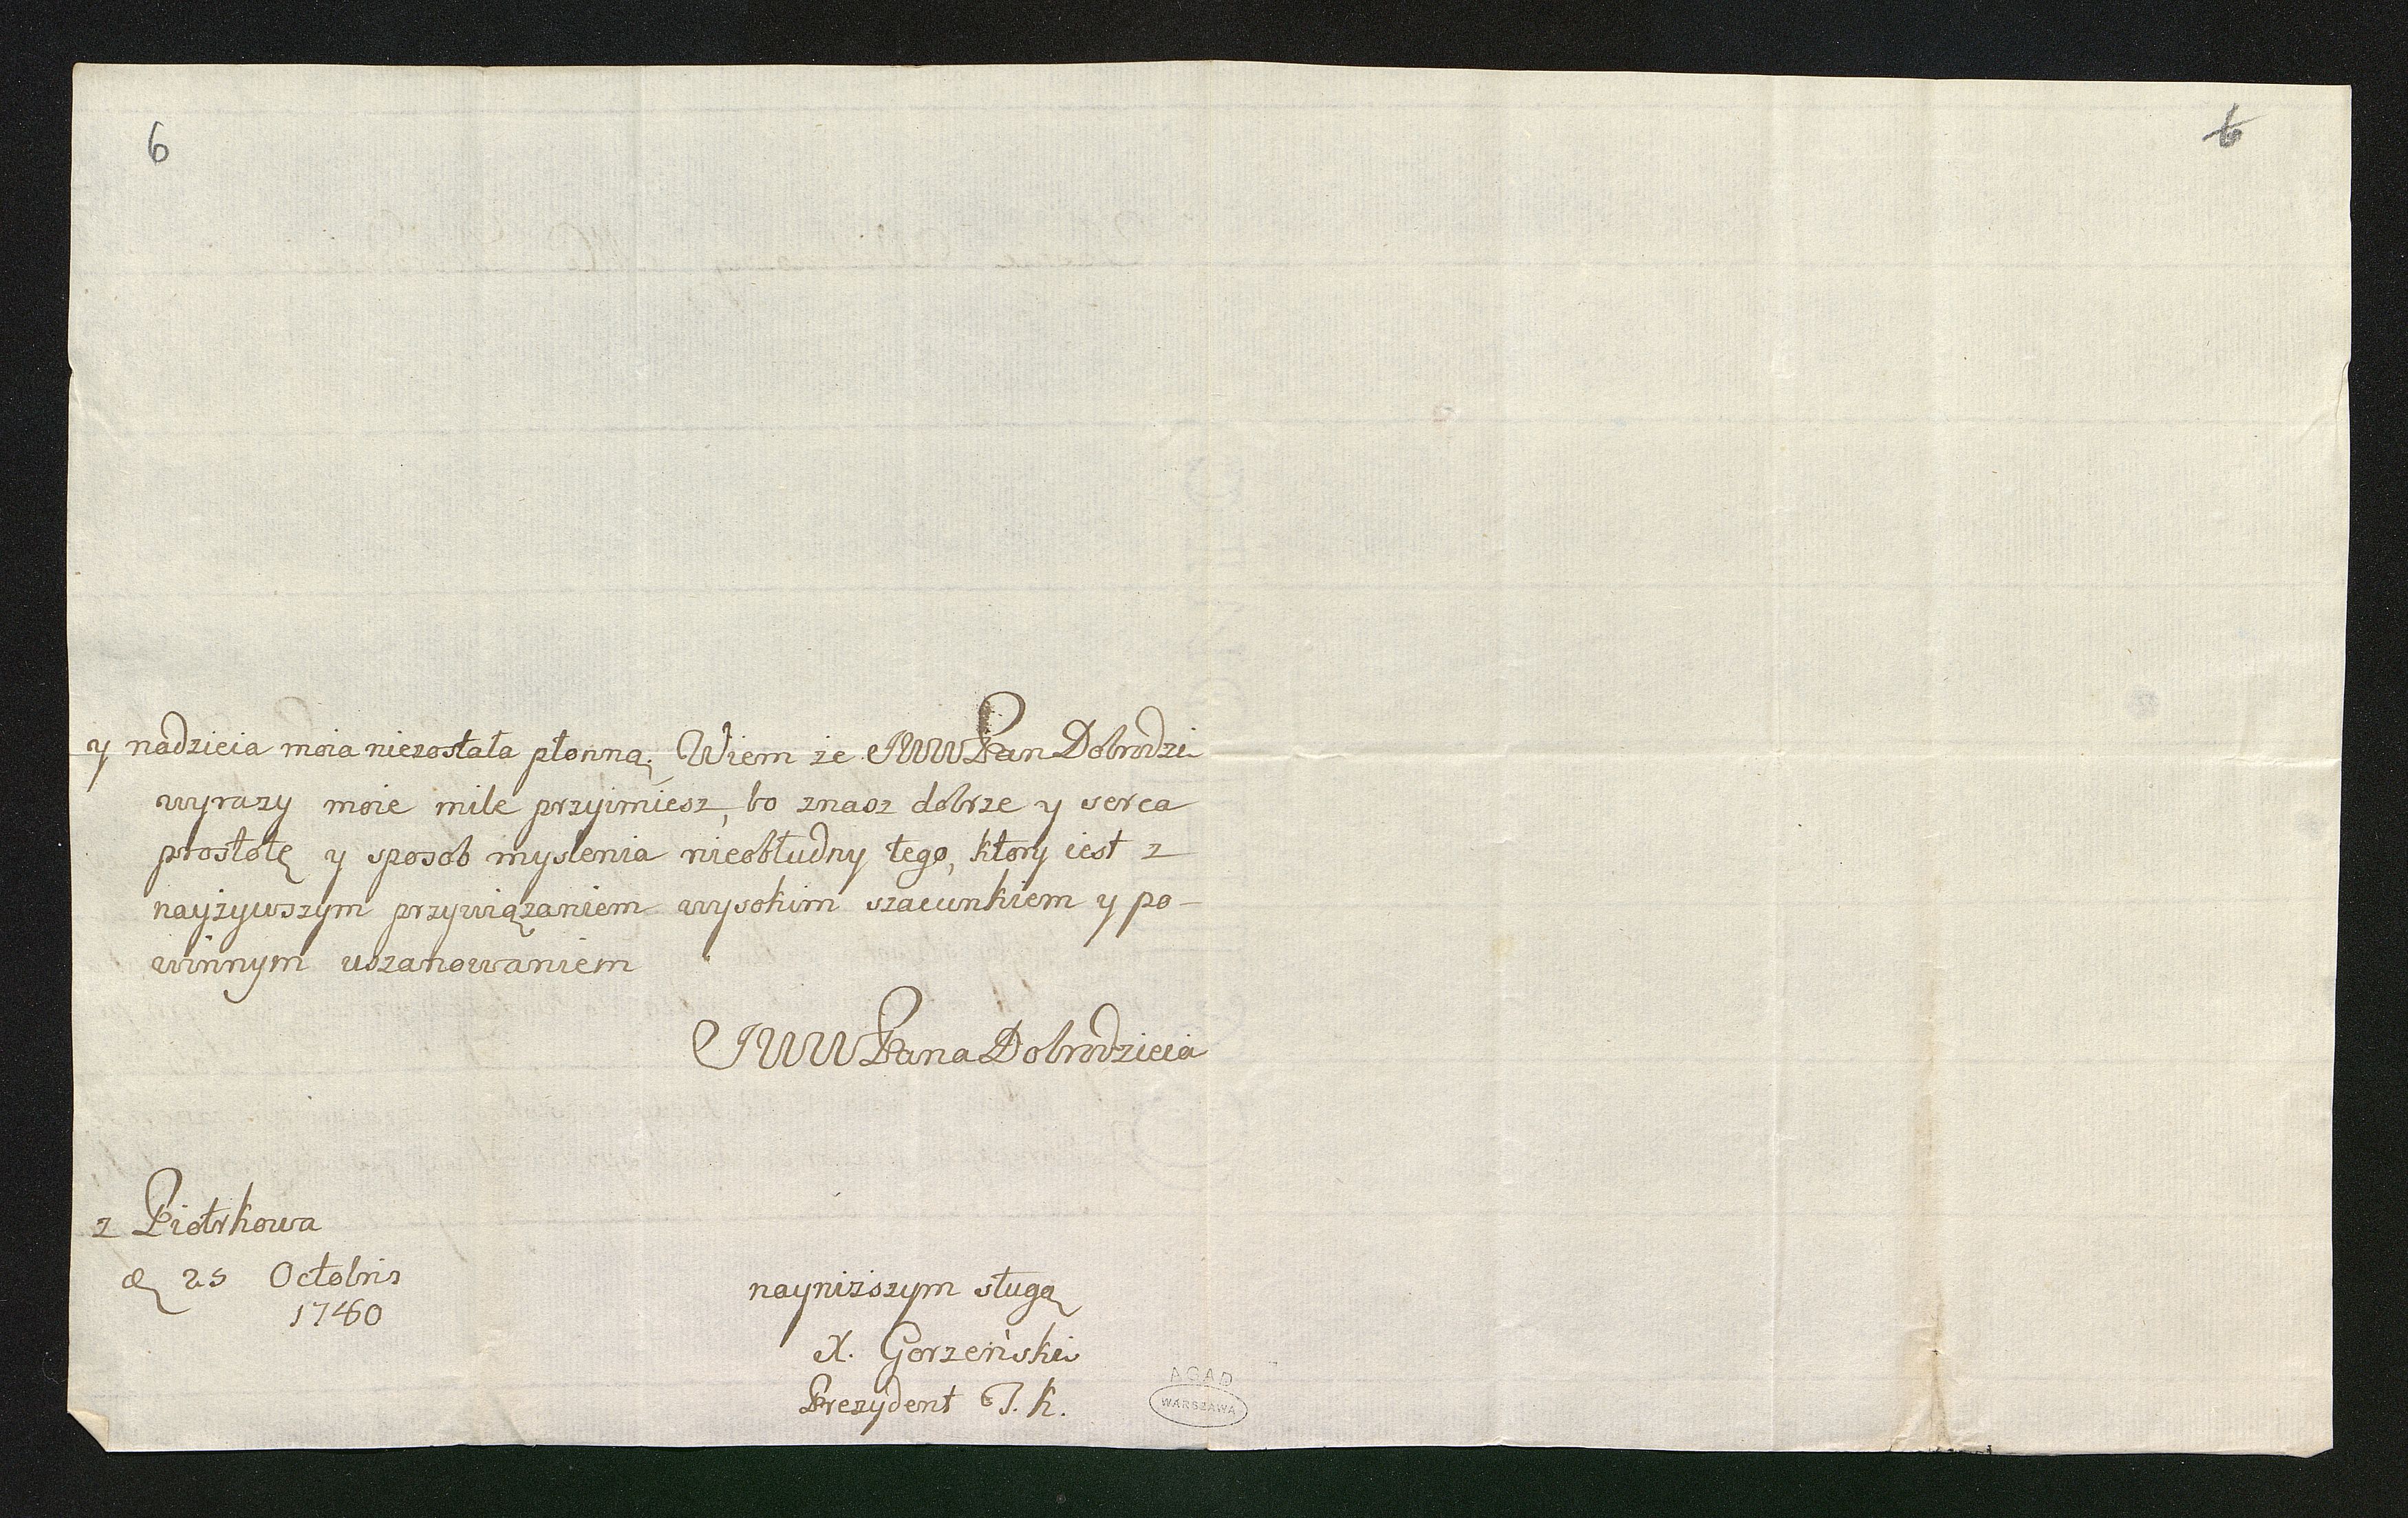 6
6
y nadzieia moia niezostała płonną. Wiem że JWWPan Dobrodzi
wyrazy moie mile przyimiesz, bo znasz dobrze y serca
prostotę y sposob myslenia nieobłudny tego, ktory iest z
nayżywszym przywiązaniem wysokim szacunkiem y po-
winnym uszanowaniem
JWWPana Dobrodzieia
z Piotrkowa
d 25 Octobris
1760
nayniższym sługą
X. Gorzeński
Prezydent T. K.
AGAD
WARSZAWA